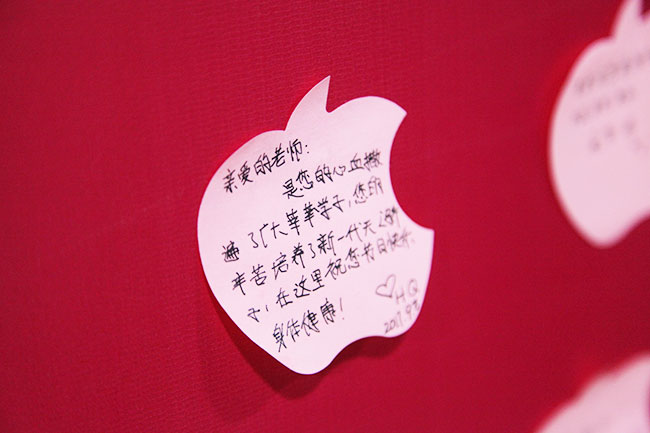 亲爱的老师：
是您的心血撒
遍了广大莘莘学子，您的
辛苦培养了新一代天之骄
子，在这里祝您节日快乐、
身体健康！
♡HQ
2017.9.8